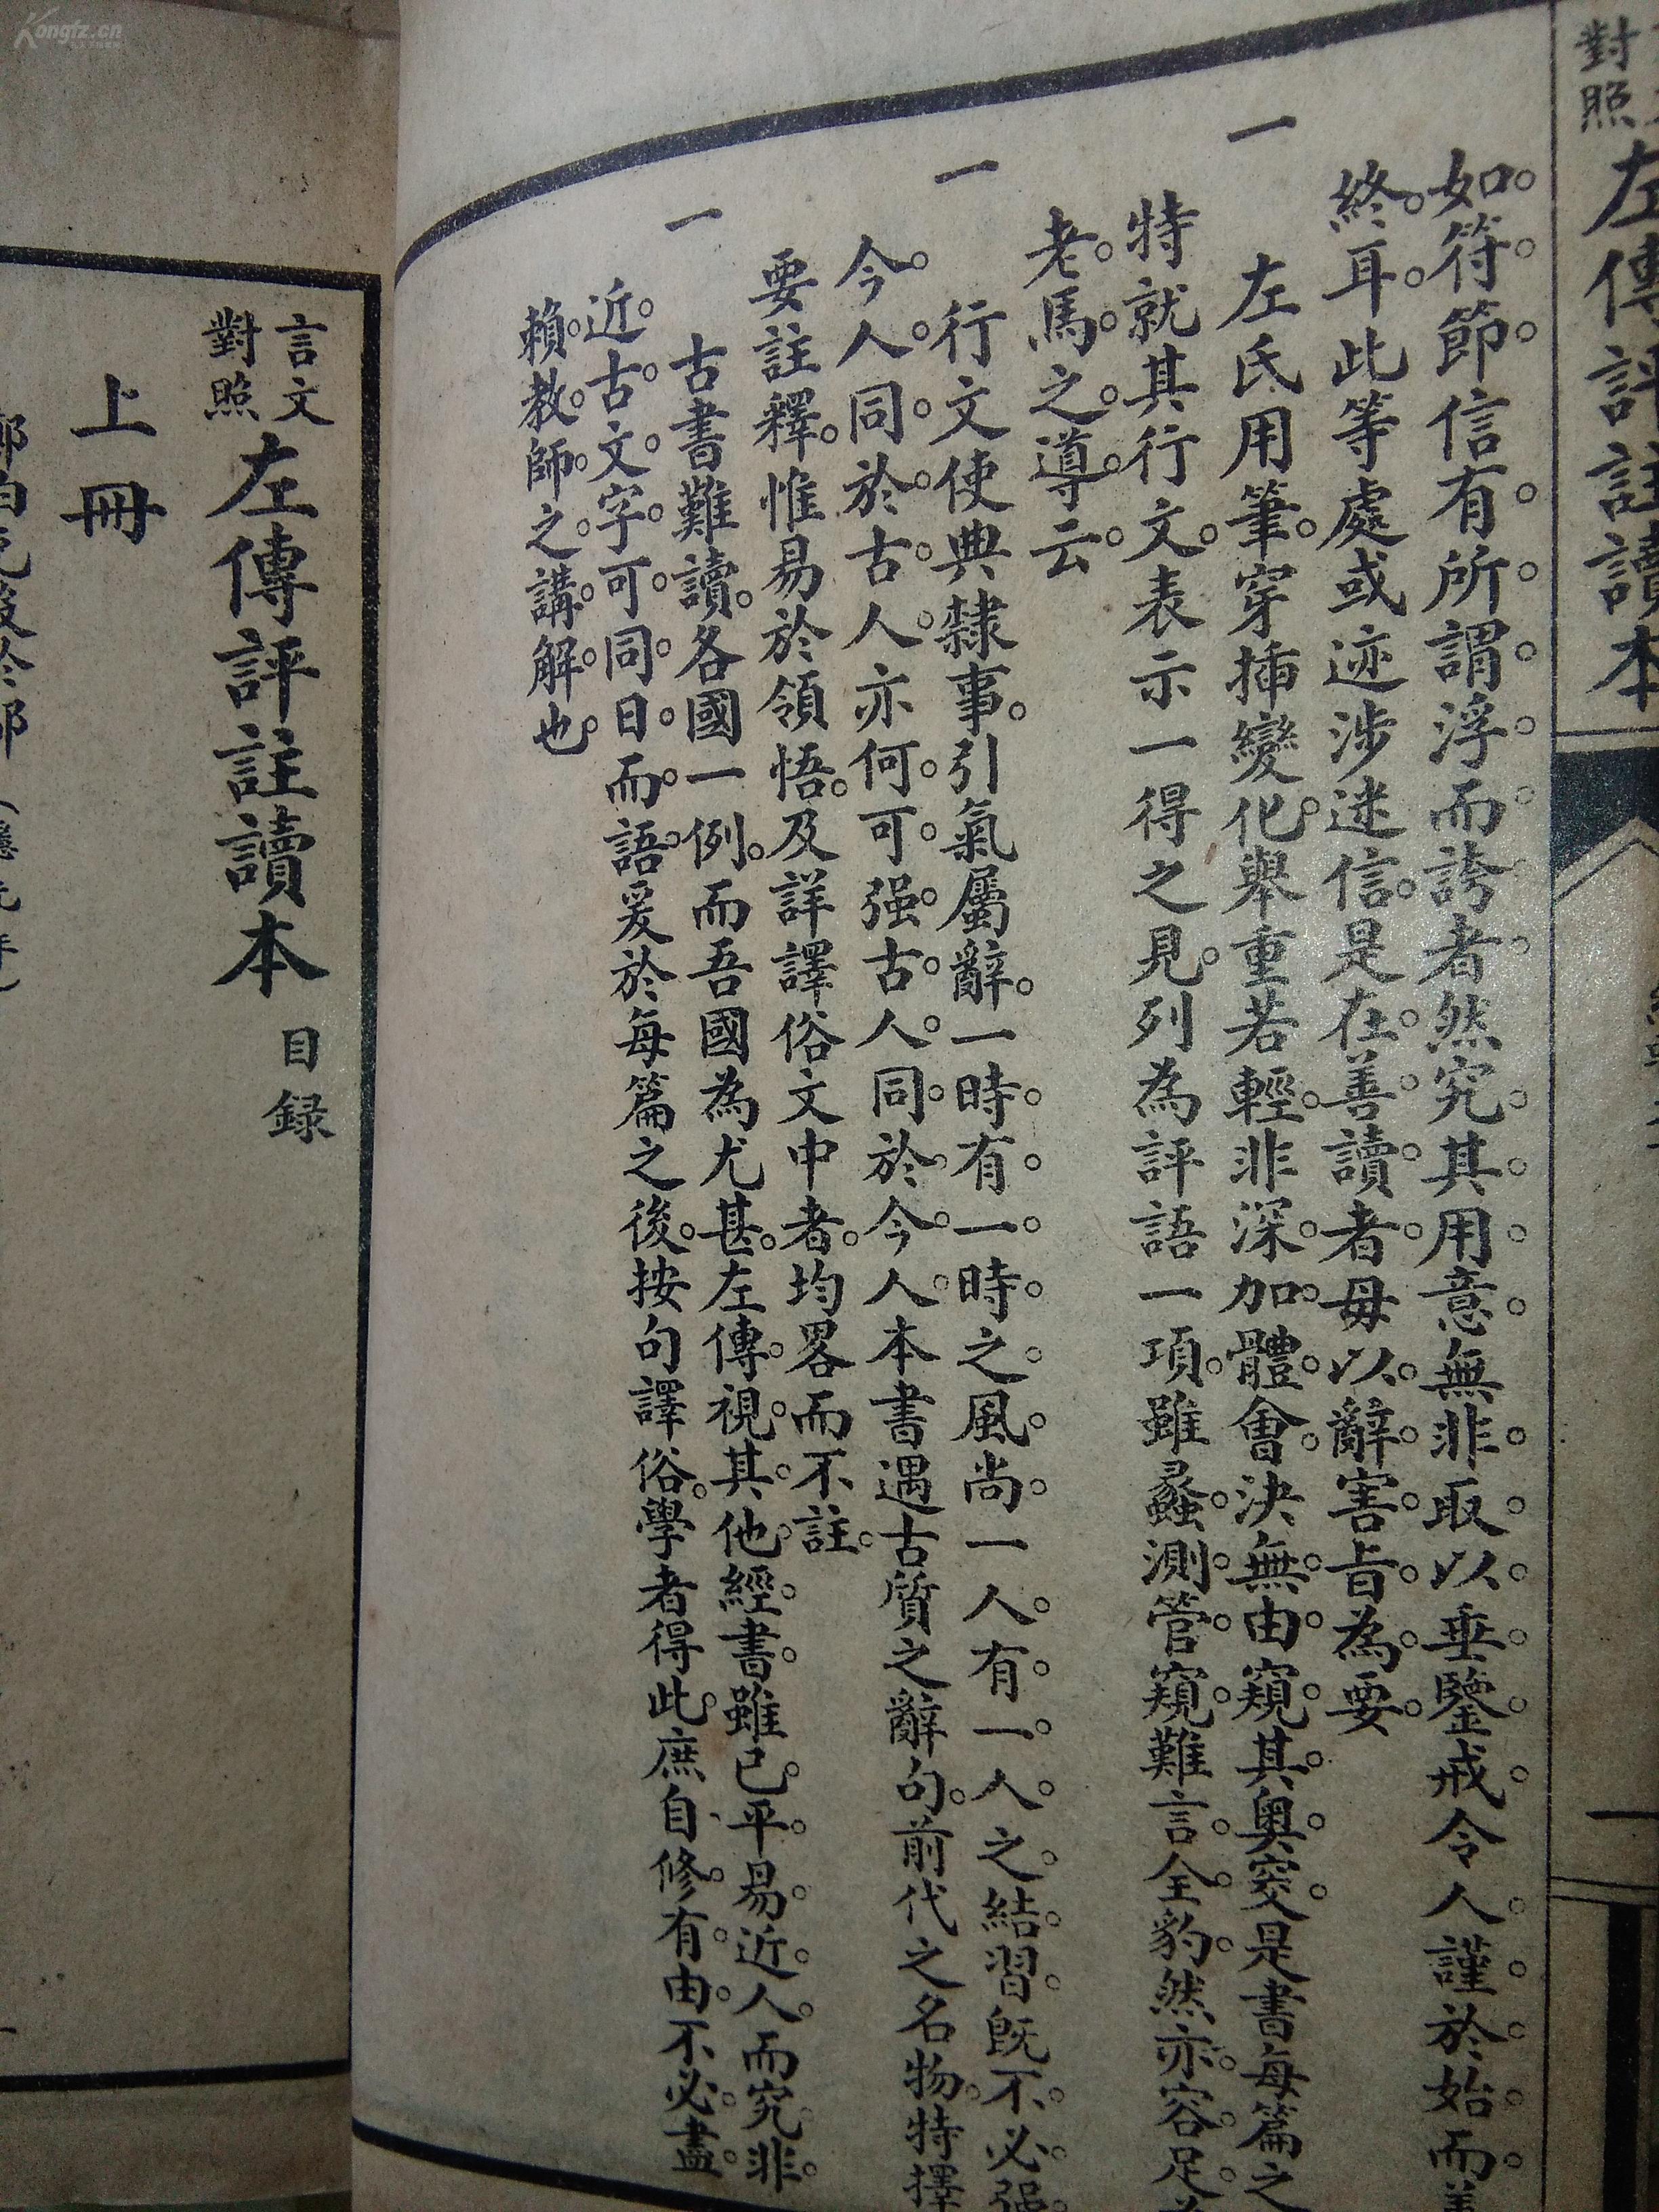 對照
左傳評註讀本
如符節信有所謂浮而誇者然究其用意無非取以垂鑒戒令人謹於始而善
終耳此等處或迹涉迷信是在善讀者毋以辭害旨為要
一
左氏用筆穿插變化舉重若輕非深加體會決無由窺其奧窔是書每篇之
特就其行文表示一得之見列為評語一項雖蠡測管窺難言全豹然亦容足
老馬之導云
一
行文使典隸事引氣屬辭一時有一時之風尚一人有一人之結習既不必强
今人同於古人亦何可强古人同於今人本書遇古質之辭句前代之名物特擇
要註釋惟易於領悟及詳譯俗文中者均畧而不註
一
古書難讀各國一例而吾國為尤甚左傳視其他經書雖已平易近人而究非
近古文字可同日而語爰於每篇之後按句譯俗學者得此庶自修有由不必盡
賴教師之講解也
言文對照
左傳評註讀本 目録
上冊
Kongfz.cn